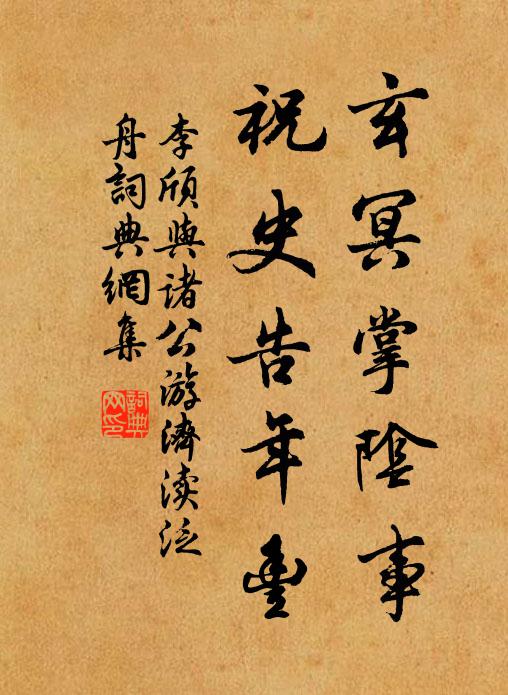 玄冥掌陰事
祝史告年豐
李頎與諸公游濟渎泛
舟詞典網集
詞典
网印